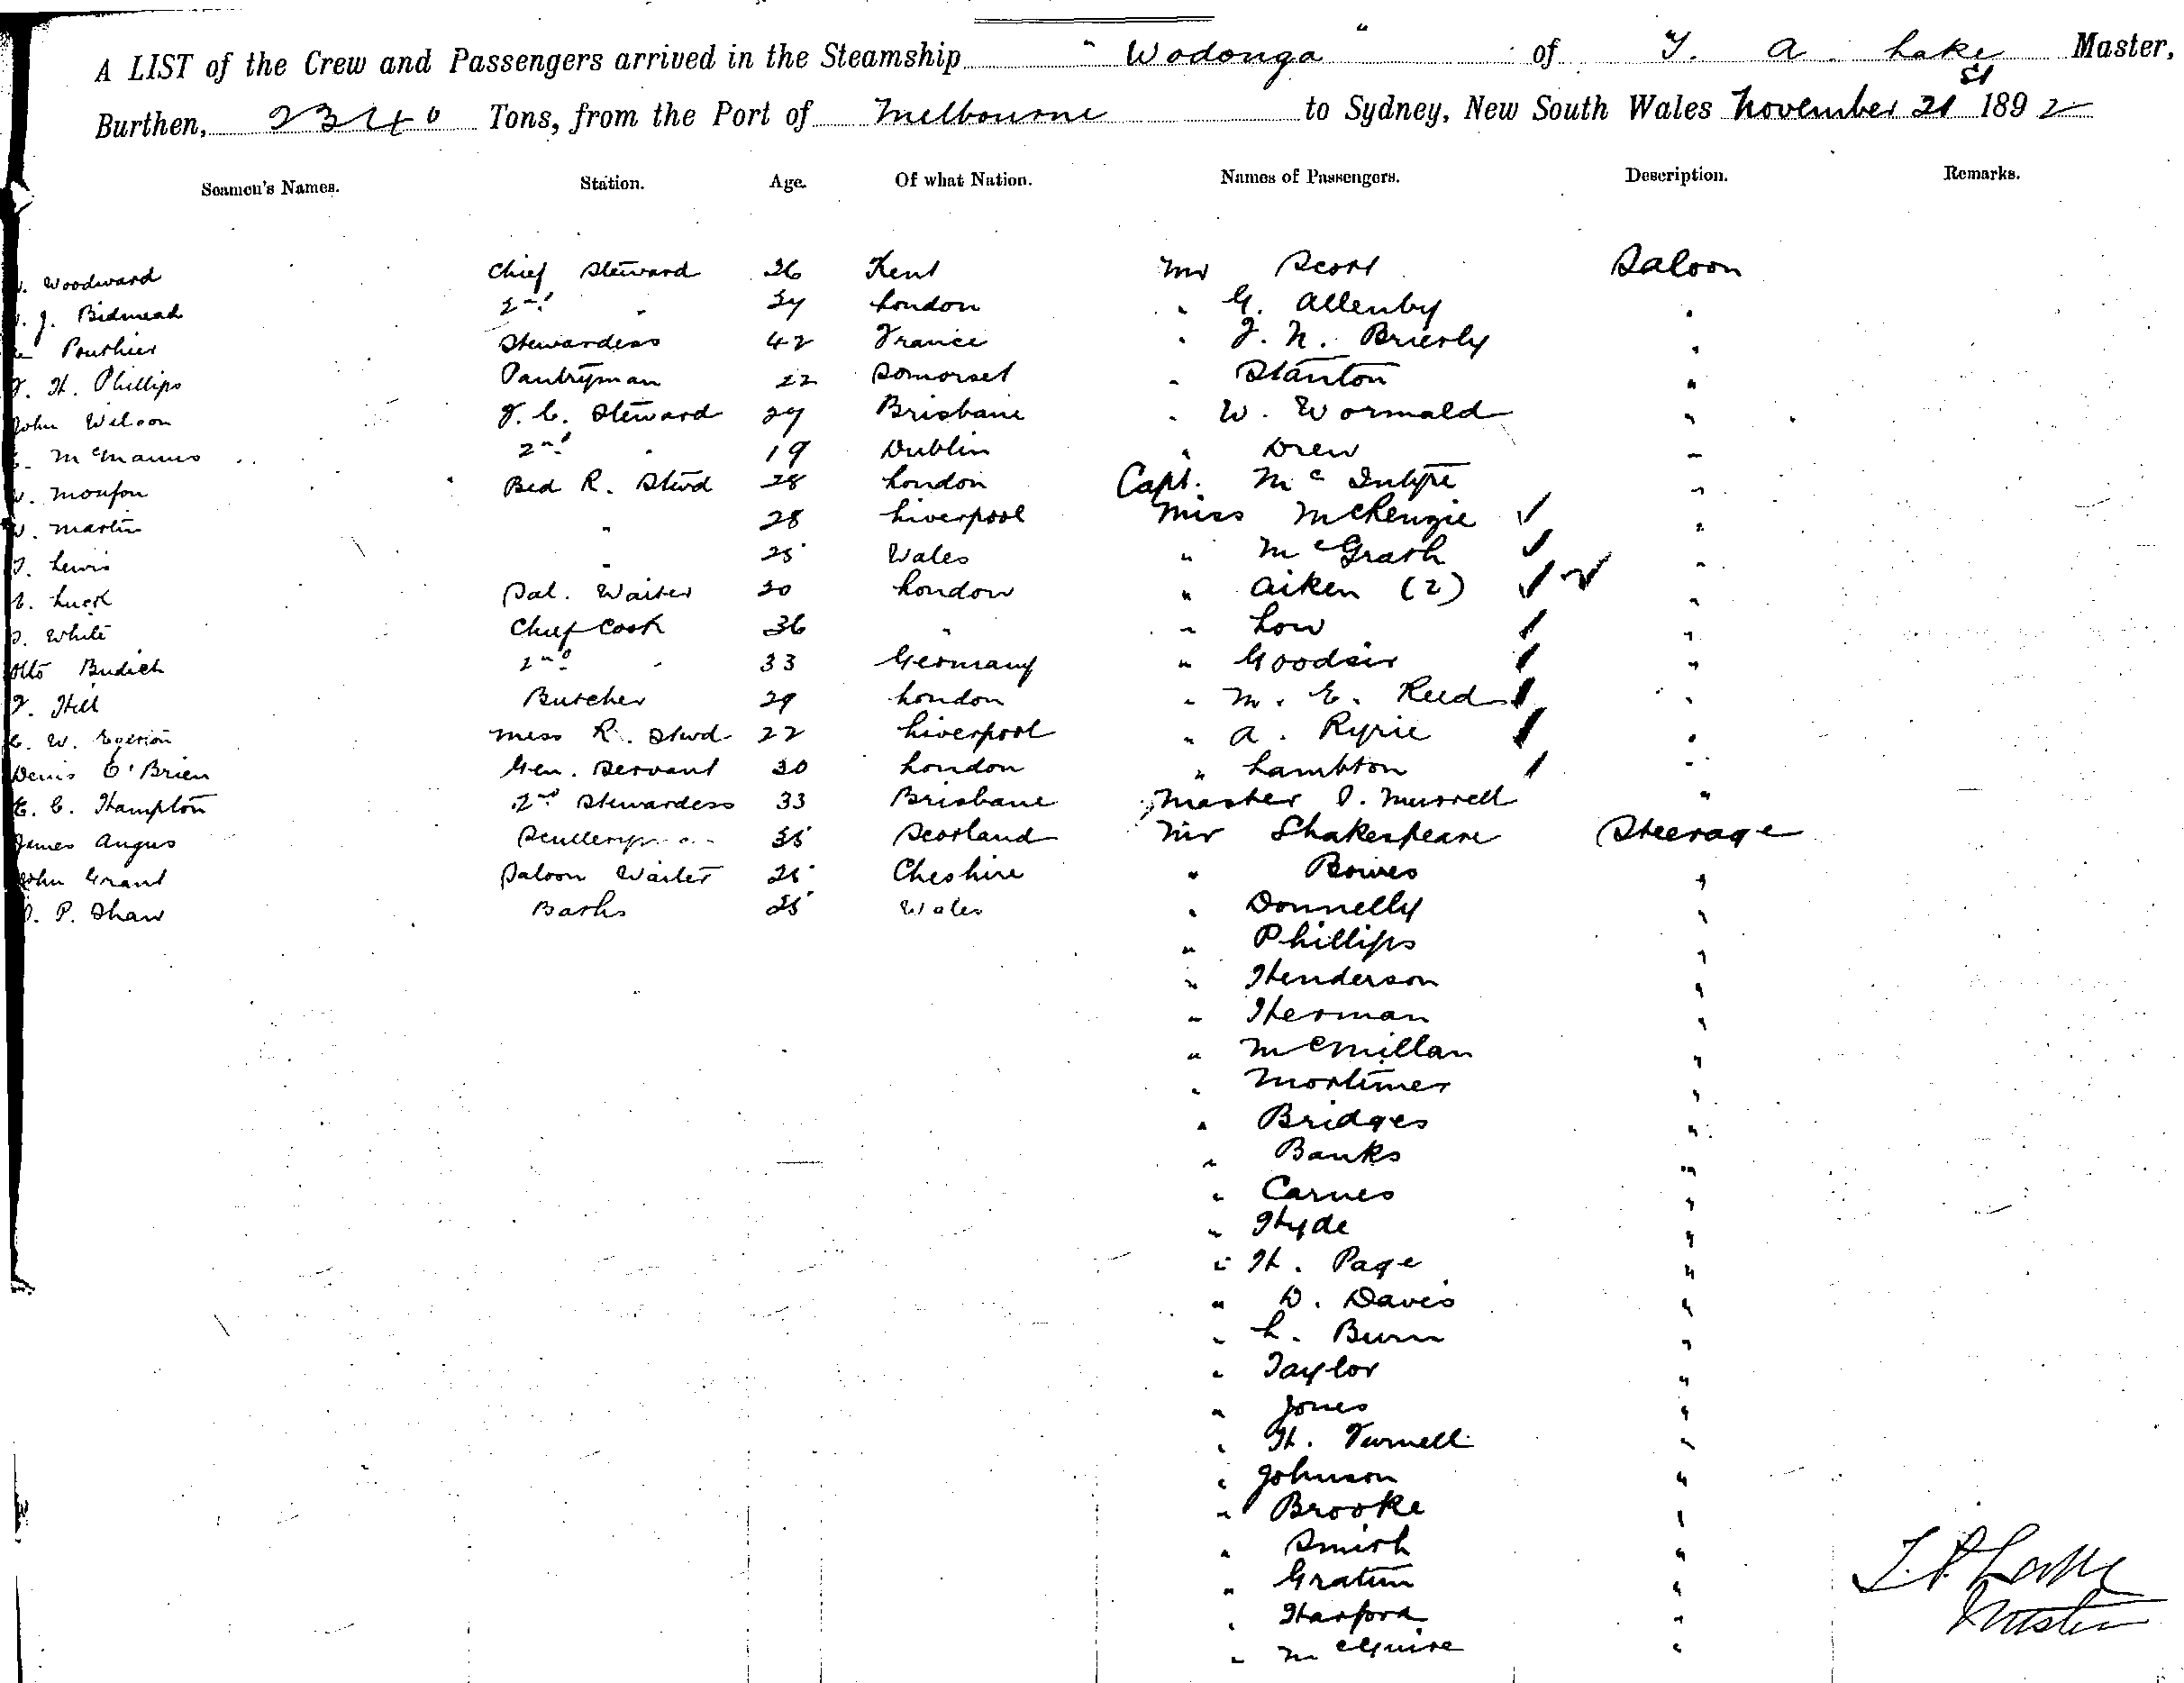 A LIST of the Crew and Passengers arrived in the Steamship "Wodonga" of T. A. Lake Master,
Burthen, 2340 Tons, from the Port of Melbourne to Sydney, New South Wales November 21st 1892
Seamen's Names. Station. Age. Of what Nation. Names of Passengers. Description. Remarks.
Woodward Chief Steward 26 Kent Mr Scott Saloon
J. Bidmead 2nd " 34 London " G. Allenby "
Pouthier Stewardess 42 France " J. N. Brierly "
H. Phillips Pantryman 22 Somerset " Stanton "
John Wilson F. C. Steward 29 Brisbane " W. Wormald "
McManus 2nd " 19 Dublin " Drew "
W. Moufou Bed R. Stwd 28 London Capt. McIntyre "
W. Martin " 28 Liverpool Miss McKenzie ✓ "
Lewis " 25 Wales " McGrath ✓ "
Luck Sal. Waiter 20 London " Aiken (2) ✓✓ "
White Chief Cook 36 " " Low ✓ "
Otto Budich 2nd " 33 Germany " Goodsir ✓ "
F. Hill Butcher 29 London " M. E. Reed ✓ "
C. W. Egerton Mess R. Stwd 22 Liverpool " A. Ryrie ✓ "
Denis O'Brien Gen. Servant 30 London " Lambton ✓ "
E. C. Hampton 2nd Stewardess 33 Brisbane Master Murrell "
James Angus Scullery 35 Scotland Mr Shakespeare Steerage
John Grant Saloon Waiter 25 Cheshire " Bowes "
P. Shaw Baths 25 Wales " Donnelly "
" Phillips "
" Henderson "
" Herman "
" McMillan "
" Mortimer "
" Bridges "
" Banks "
" Carnes "
" Hyde "
" H. Page "
" D. Davis "
" L. Burn "
" Taylor "
" Jones "
" H. Turnell "
" Johnson "
" Brooke "
" Smith "
" Gratim "
" Harford "
" McGuire "
T. A. Lake
Master